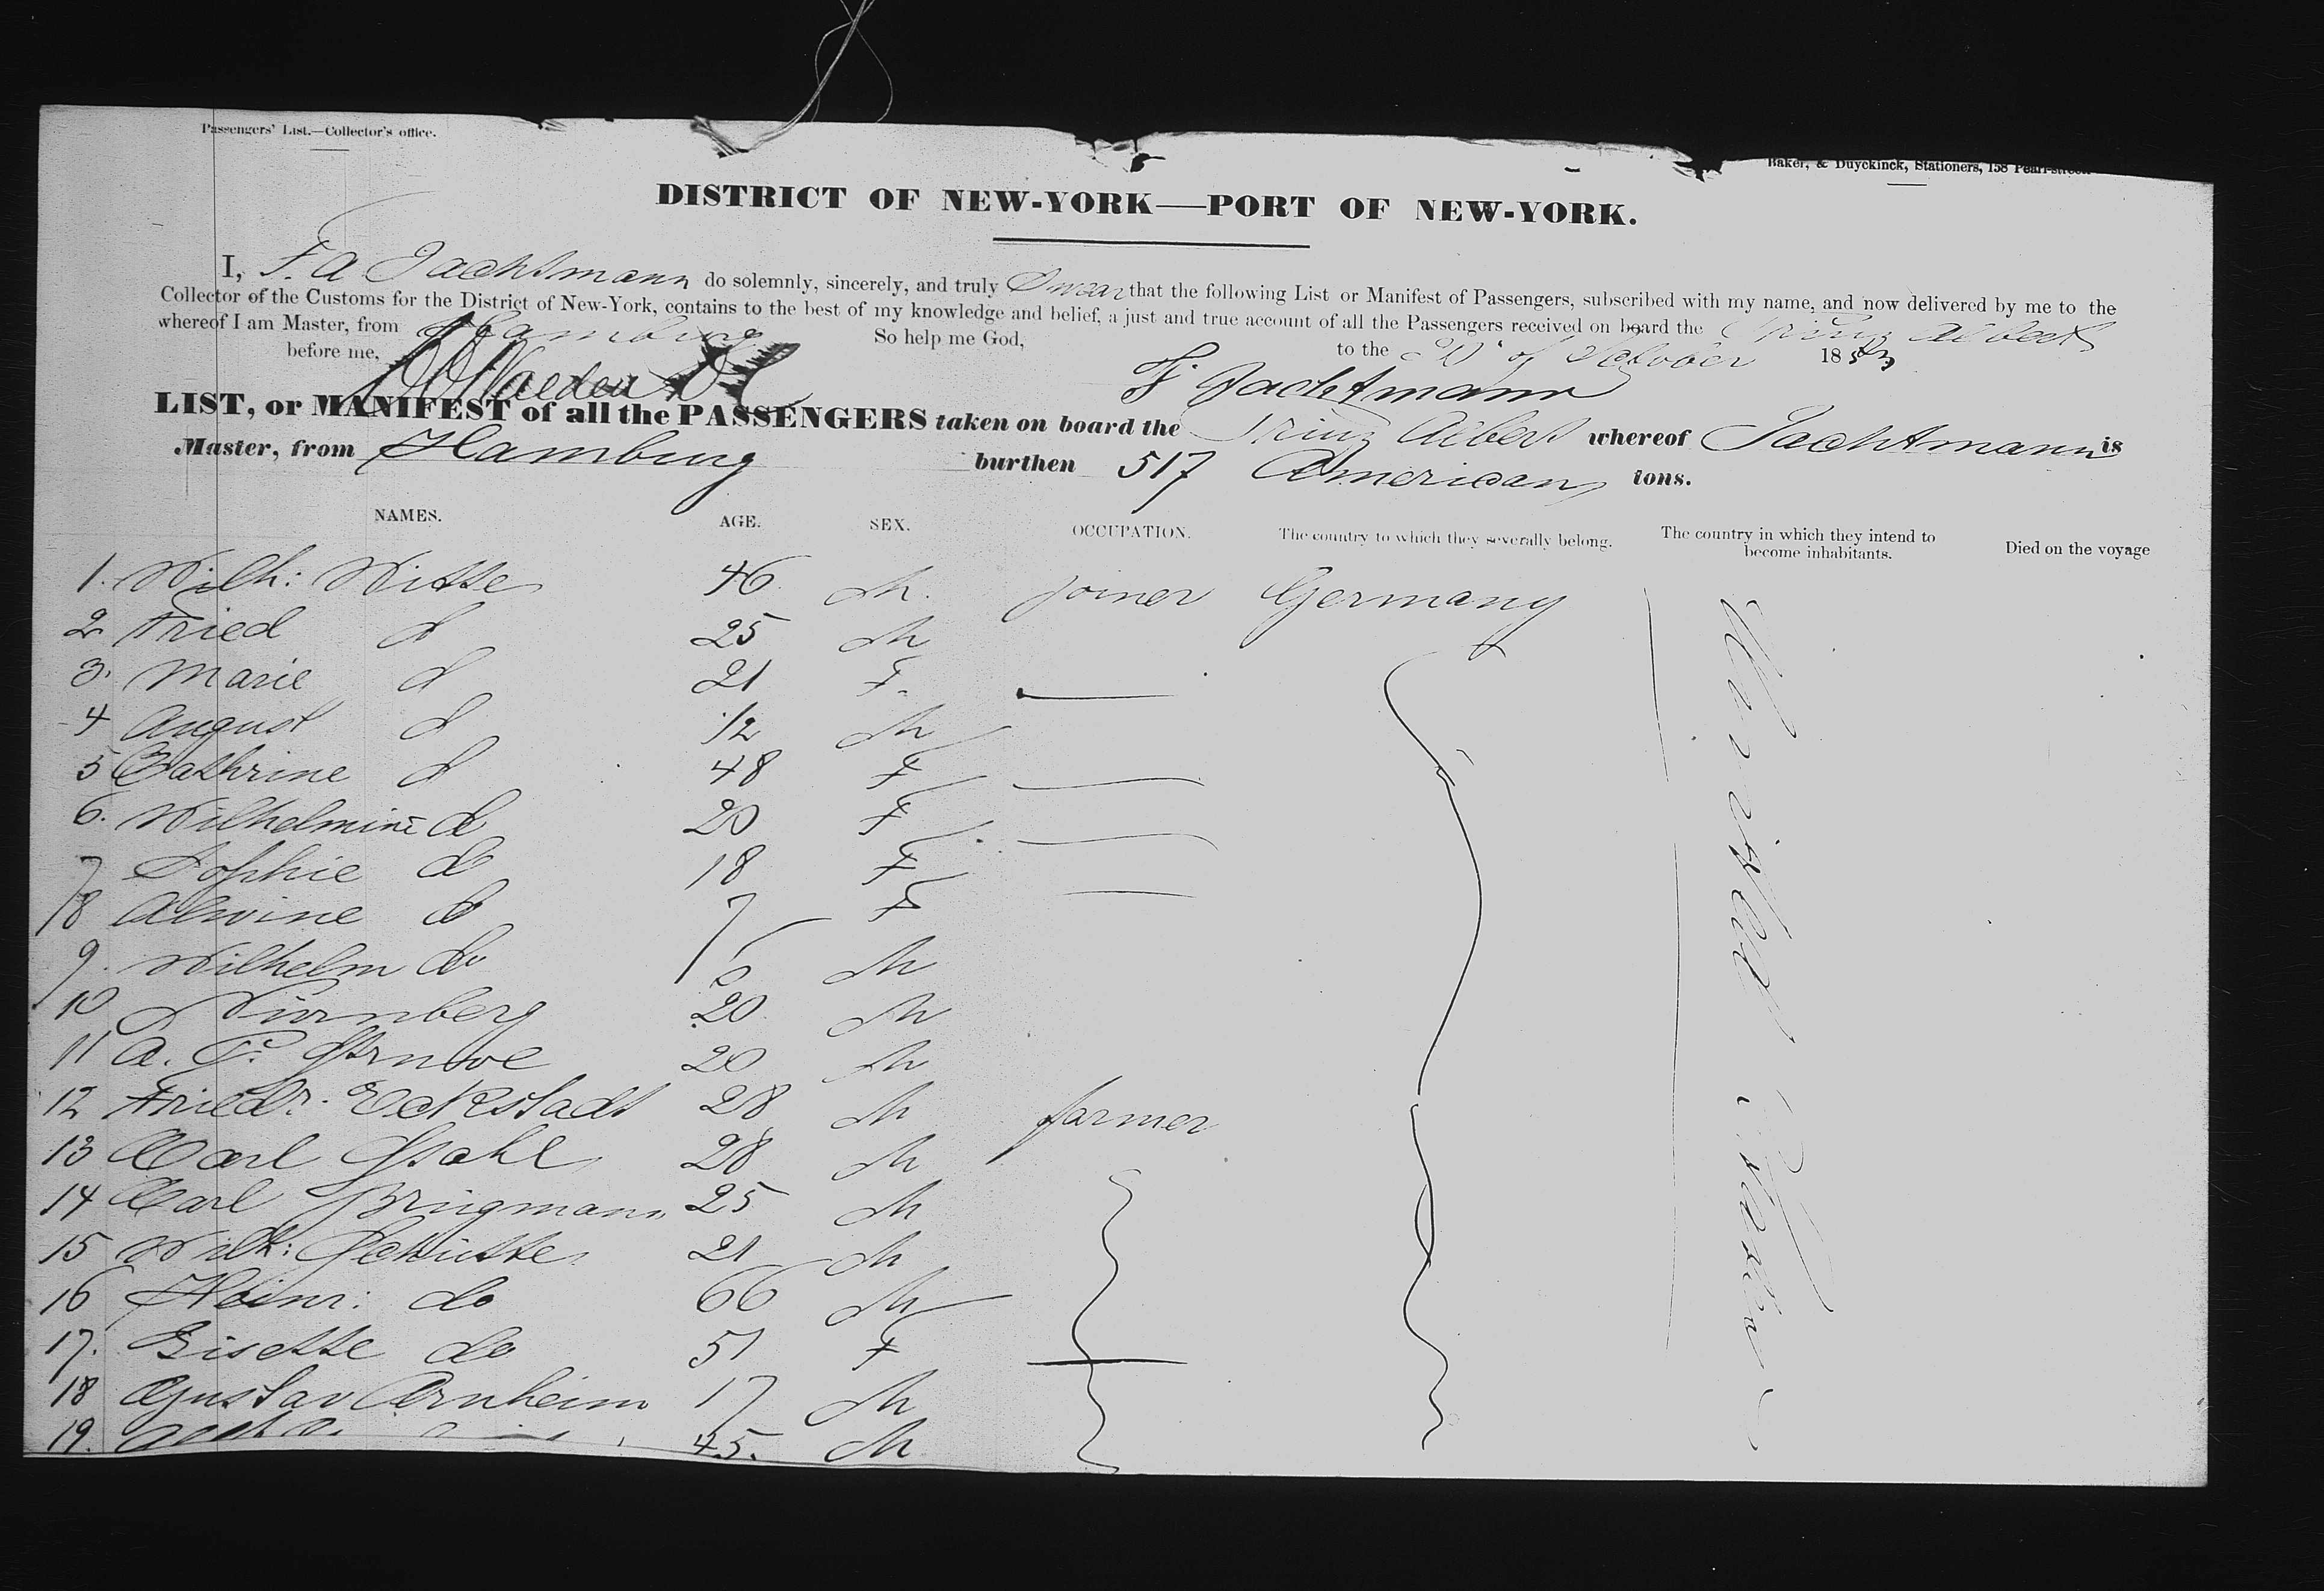 Passengers' List.—Collector's office.
Baker, & Duyckinck, Stationers, 158 Pearl-street
DISTRICT OF NEW-YORK—PORT OF NEW-YORK.
I, F. A Jachtmann do solemnly, sincerely, and truly Swear that the following List or Manifest of Passengers, subscribed with my name, and now delivered by me to the
Collector of the Customs for the District of New-York, contains to the best of my knowledge and belief, a just and true account of all the Passengers received on board the Prinz Albert
whereof I am Master, from Hamburg So help me God,
before me, to the of October 185
F. Jachtmann
LIST, or MANIFEST of all the PASSENGERS taken on board the Prinz Albert whereof Jachtmann is
Master, from Hamburg burthen 517 American tons.
NAMES. AGE. SEX. OCCUPATION. The country to which they severally belong. The country in which they intend to become inhabitants. Died on the voyage
1. Wilh: Witte 46 M. joiner Germany
2 Fried d 25 M
3. Marie d 21 F.
4 August d 1/2 M
5 Cathrine d 48 F
6. Wilhelmine d 20 F
7 Sophie do 18 F
8 Alwine do 7 F
9. Wilhelm do M
10 Nürnberg 20 M
11 A. 20 M
12 Friedr. Eckstadt 28 M farmer
13 Carl 28 M
14 Carl Bringmann 25 M
15 Wilh: Schütte 21 M
16 Heinr: do 66 M
17. Lisette do 51 F
18 Gustav Arnheim 17 M
19. 45. M
United States